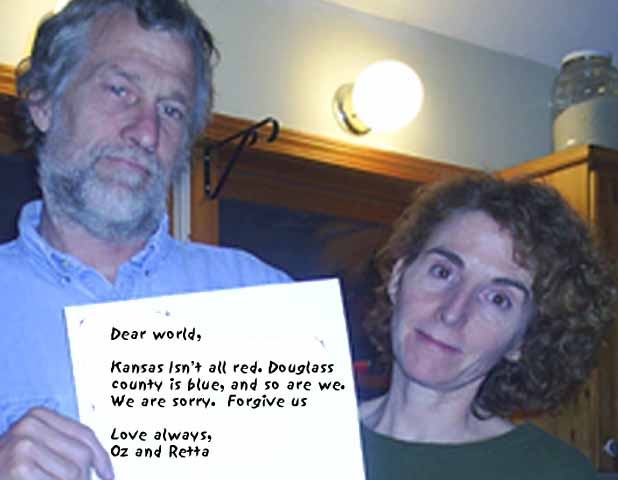 Dear world,
Kansas Isn't all red. Douglass
county is blue, and so are we.
We are sorry. Forgive us
Love always,
Oz and Retta